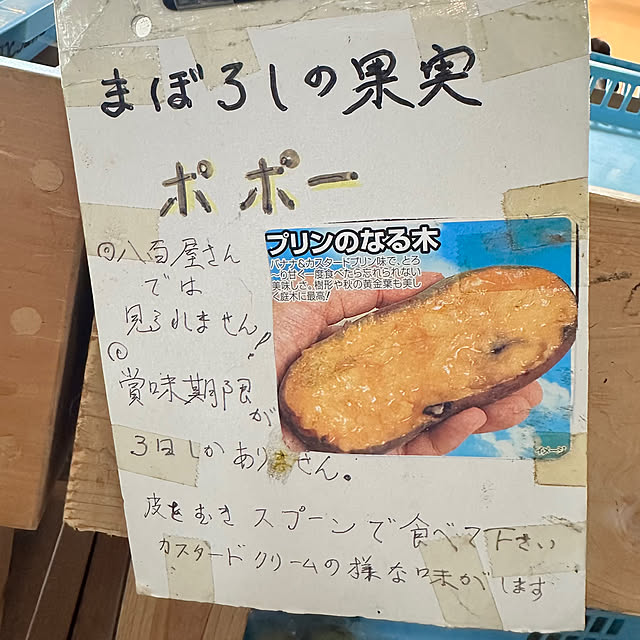 まぼろしの果実
ポポー
◎八百屋さん
では
見られません!
◎
賞味期限
が
3日しかありません。
プリンのなる木
バナナ&カスタードプリン味で、とろ
〜り甘く一度食べたら忘れられない
美味しさ。樹形や秋の黄金葉も美し
く庭木に最高!
イメージ
皮をむきスプーンで食べて下さい
カスタードクリームの様な味がします